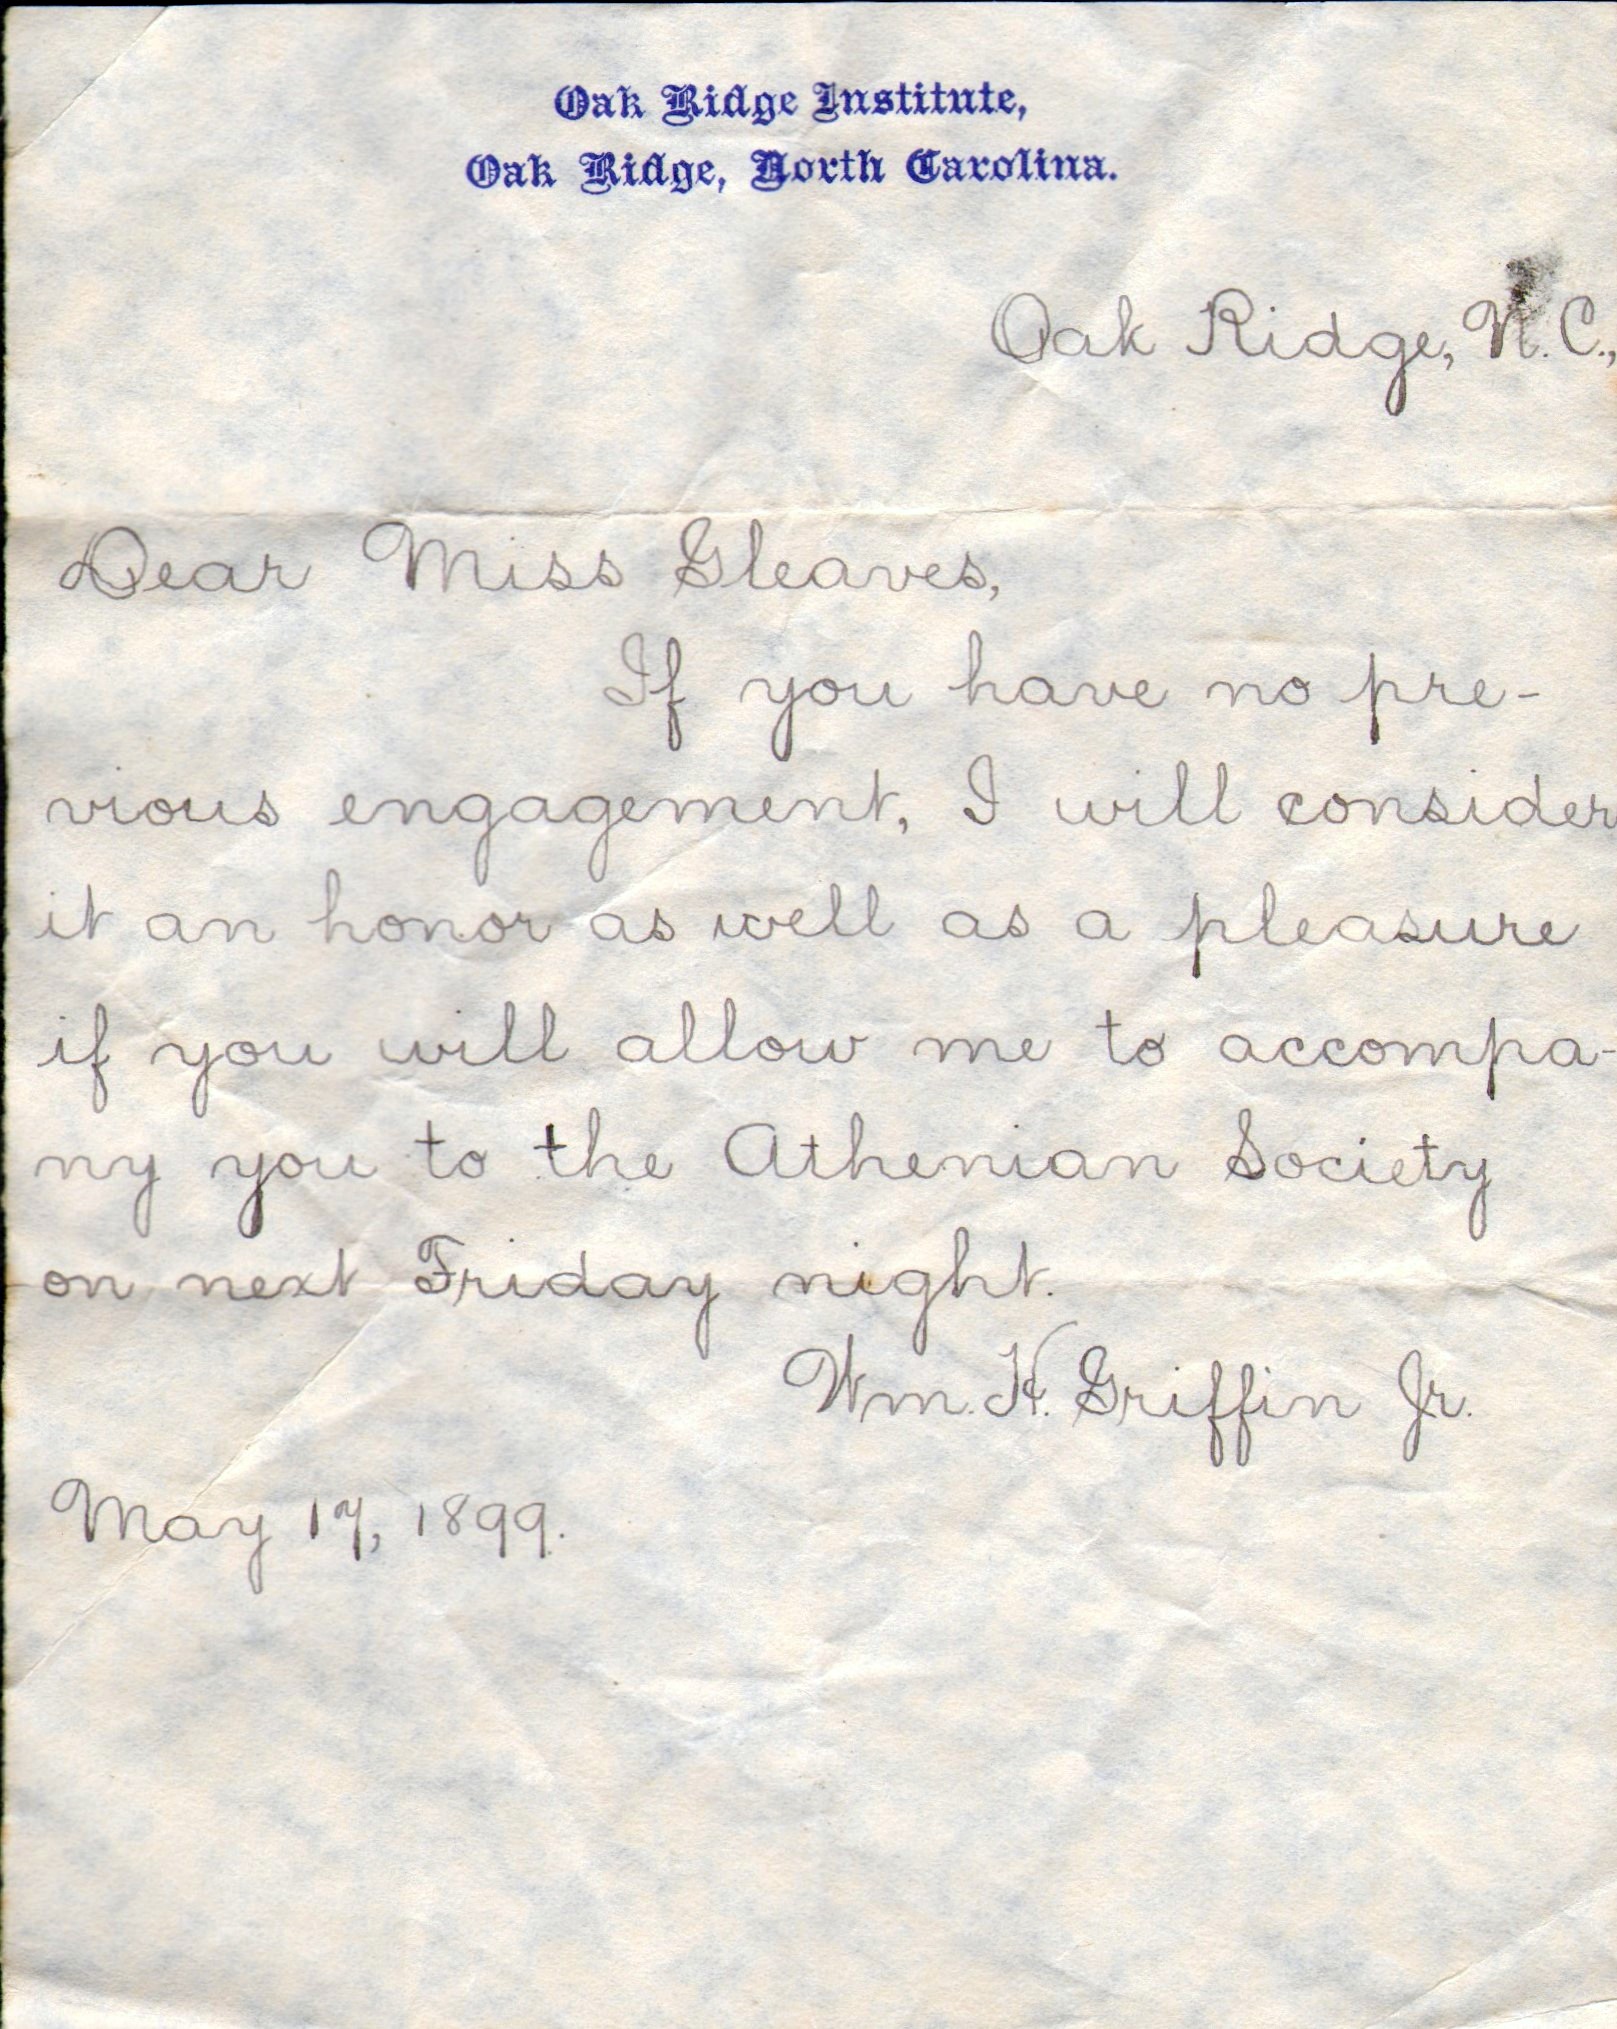 Oak Ridge Institute,
Oak Ridge, North Carolina.
Oak Ridge, N.C.,
Dear Miss Gleaves,
If you have no pre-
vious engagement, I will consider
it an honor as well as a pleasure
if you will allow me to accompa-
ny you to the Athenian Society
on next Friday night.
Wm. H. Griffin Jr.
May 17, 1899.